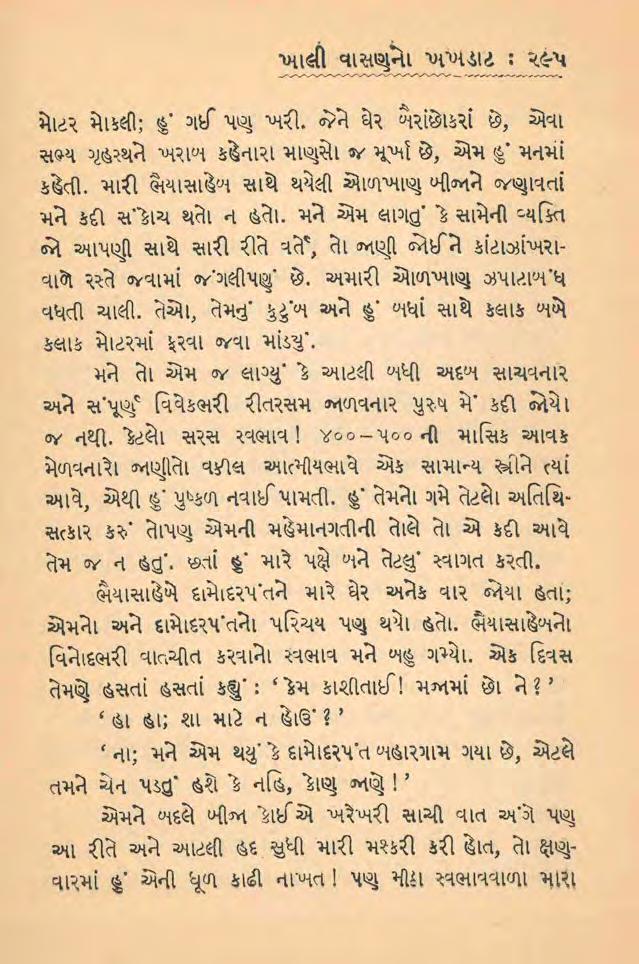 ખાલી વાસણનો ખખડાટ : ૨૯૫
મોટર મોકલી; હું ગઈ પણ ખરી. જેને ઘેર બૈરાંછોકરાં છે, એવા
સભ્ય ગૃહસ્થને ખરાબ કહેનારા માણસો જ મૂર્ખા છે, એમ હું મનમાં
કહેતી. મારી ભૈયાસાહેબ સાથે થયેલી ઓળખાણ બીજાને જણાવતાં
મને કદી સંકોચ થતો ન હતો. મને એમ લાગતું કે સામેની વ્યક્તિ
જો આપણી સાથે સારી રીતે વર્તે, તો જાણી જોઈને કાંટાઝાંખરા-
વાળે રસ્તે જવામાં જંગલીપણું છે. અમારી ઓળખાણ ઝપાટાબંધ
વધતી ચાલી. તેઓ, તેમનું કુટુંબ અને હું બધાં સાથે કલાક બબે
કલાક મોટરમાં ફરવા જવા માંડયું.
મને તો એમ જ લાગ્યું કે આટલી બધી અદબ સાચવનાર
અને સંપૂર્ણ વિવેકભરી રીતરસમ જાળવનાર પુરુષ મેં કદી જોયો
જ નથી. કેટલો સરસ સ્વભાવ! ૪૦૦–૫૦૦ ની માસિક આવક
મેળવનારો જાણીતો વકીલ આત્મીયભાવે એક સામાન્ય સ્ત્રીને ત્યાં
આવે, એથી હું પુષ્કળ નવાઈ પામતી. હું તેમનો ગમે તેટલો અતિથિ-
સત્કાર કરું તોપણ એમની મહેમાનગતીની તોલે તો એ કદી આવે
તેમ જ ન હતું. છતાં હું મારે પક્ષે બને તેટલું સ્વાગત કરતી.
ભૈયાસાહેબે દામોદરપંતને મારે ઘેર અનેક વાર જોયા હતા;
એમનો અને દામોદરપંતનો પરિચય પણ થયો હતો. ભૈયાસાહેબનો
વિનોદભરી વાતચીત કરવાનો સ્વભાવ મને બહુ ગમ્યો. એક દિવસ
તેમણે હસતાં હસતાં કહ્યું : ‘કેમ કાશીતાઈ! મજામાં છો ને?’
‘હા હા; શા માટે ન હોઉં?’
‘ના; મને એમ થયું કે દામોદરપંત બહારગામ ગયા છે, એટલે
તમને ચેન પડતું હશે કે નહિ, કોણ જાણે!’
એમને બદલે બીજા કોઈએ ખરેખરી સાચી વાત અંગે પણ
આ રીતે અને આટલી હદ સુધી મારી મશ્કરી કરી હોત, તો ક્ષણ-
વારમાં હું એની ધૂળ કાઢી નાખત! પણ મીઠા સ્વભાવવાળા મારા